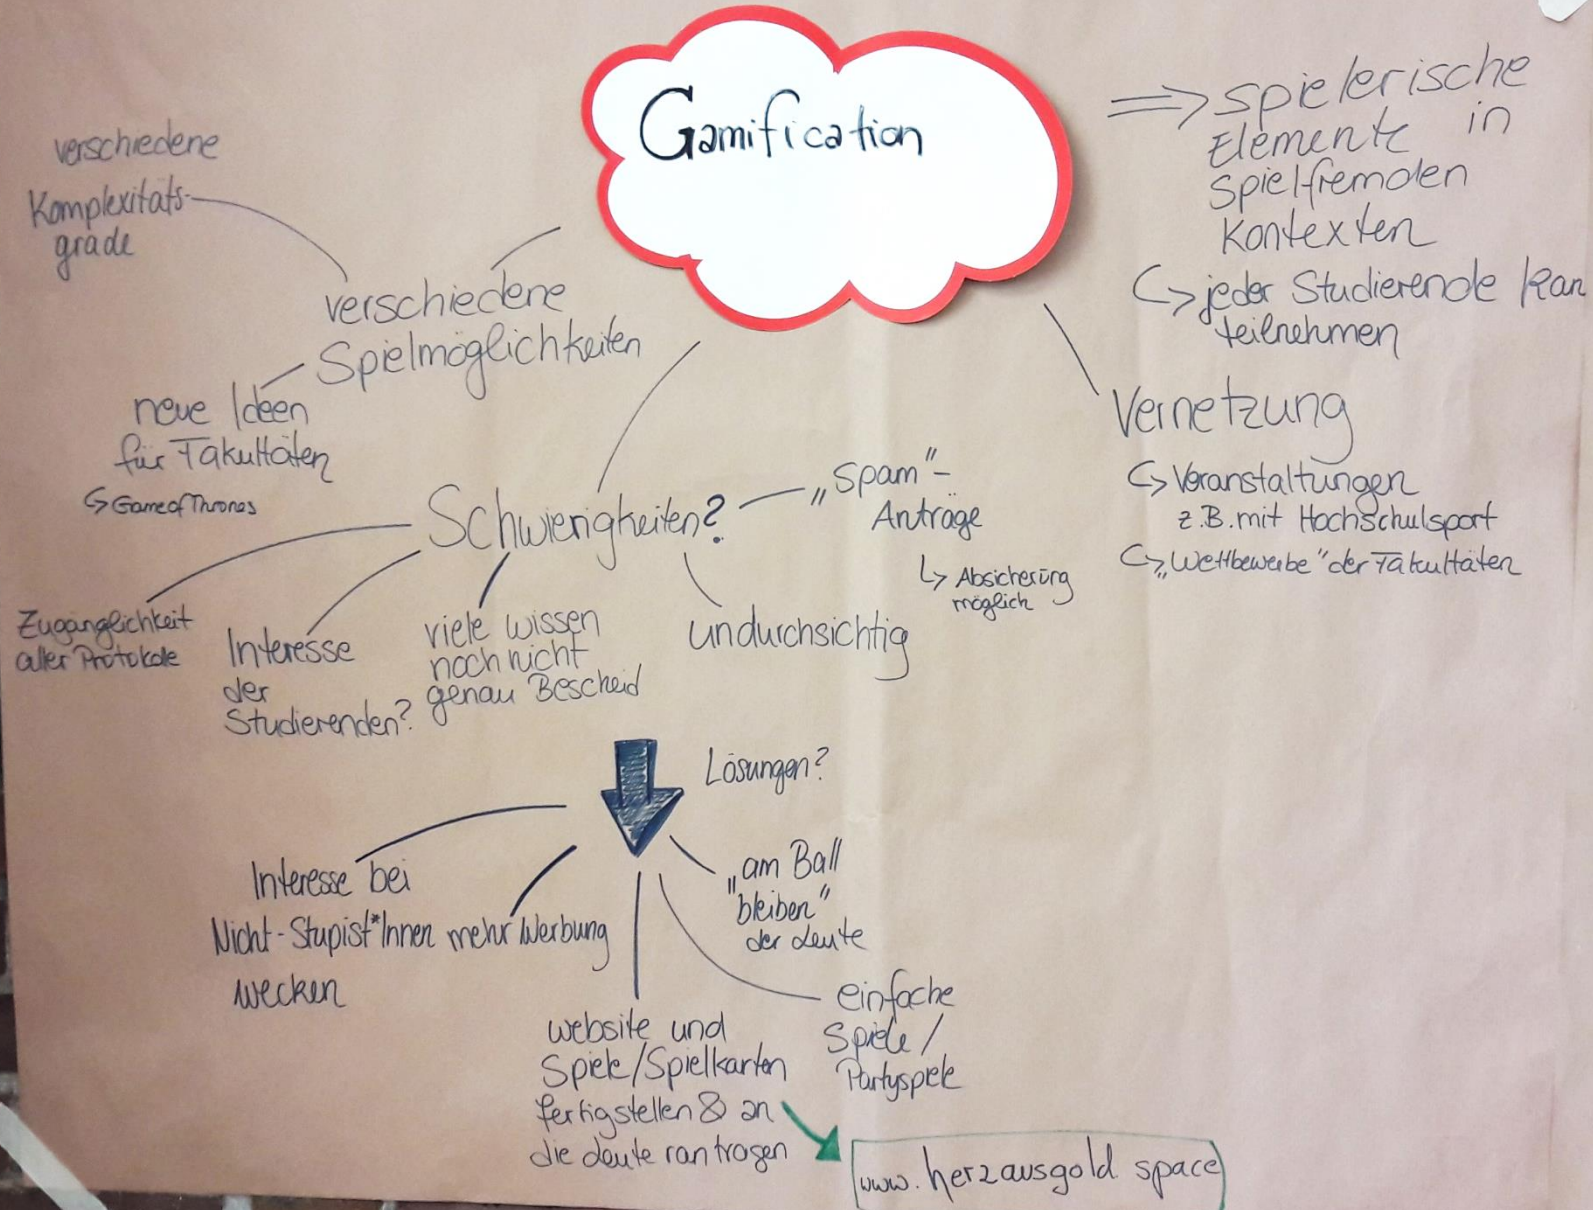 Gamification
=> spielerische
Elemente in
Spielfremden
Kontexten
↪ jeder Studierende kan
teilnehmen
verschiedene
Komplexitäts-
grade
verschiedene
Spielmöglichkeiten
neue Ideen
für Fakultäten
↪ Game of Thrones
Vernetzung
↪ Veranstaltungen
z.B. mit Hochschulsport
↪ „Wettbewerbe" der Fakultäten
Schwierigkeiten?
„Spam"-
Anträge
↳ Absicherung
möglich
Zugänglichkeit
aller Protokole
Interesse
der
Studierenden?
viele wissen
noch nicht
genau Bescheid
undurchsichtig
Lösungen?
Interesse bei
Nicht-Stupist*Innen
wecken
mehr Werbung
„am Ball
bleiben"
der Leute
website und
Spiele/Spielkarten
fertigstellen & an
die Leute rantragen
einfache
Spiele/
Partyspiele
www.herzausgold.space